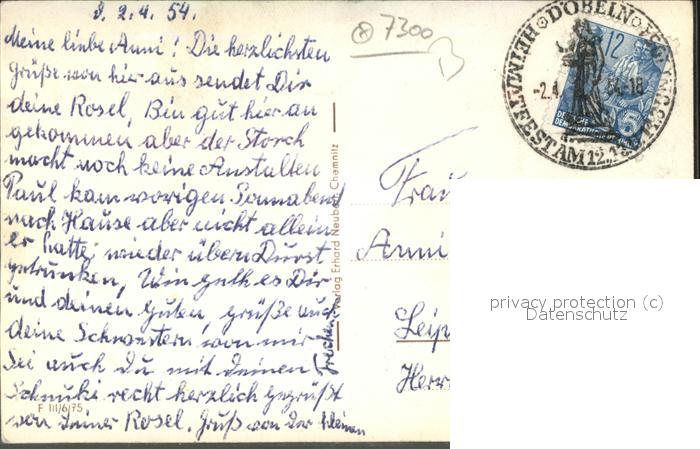 d. 2.4. 54.
Meine liebe Anni! Die herzlichsten
Grüße von hier aus sendet Dir
deine Rosel, Bin gut hier an
gekommen aber der Storch
macht noch keine Anstalten
Paul kam vorigen Sonnabend
nach Hause aber nicht allein
er hatte wieder übern Durst
getrunken, Wie geht es Dir
und deinen Guten, grüße auch
deine Schwestern von mir
Sei auch Du mit deinen
Schnuki recht herzlich gegrüßt
von Deiner Rosel. Gruß von der kleinen
7300
B
Frau
Anni
Leip
Herr
Verlag Erhard Neubert, Chemnitz
F III/6/75
DÖBELN
HEIMATFEST AM 12.
-2.4. 54-18
12
DEUTSCHE
DEMOKRATISCHE
privacy protection (c)
Datenschutz